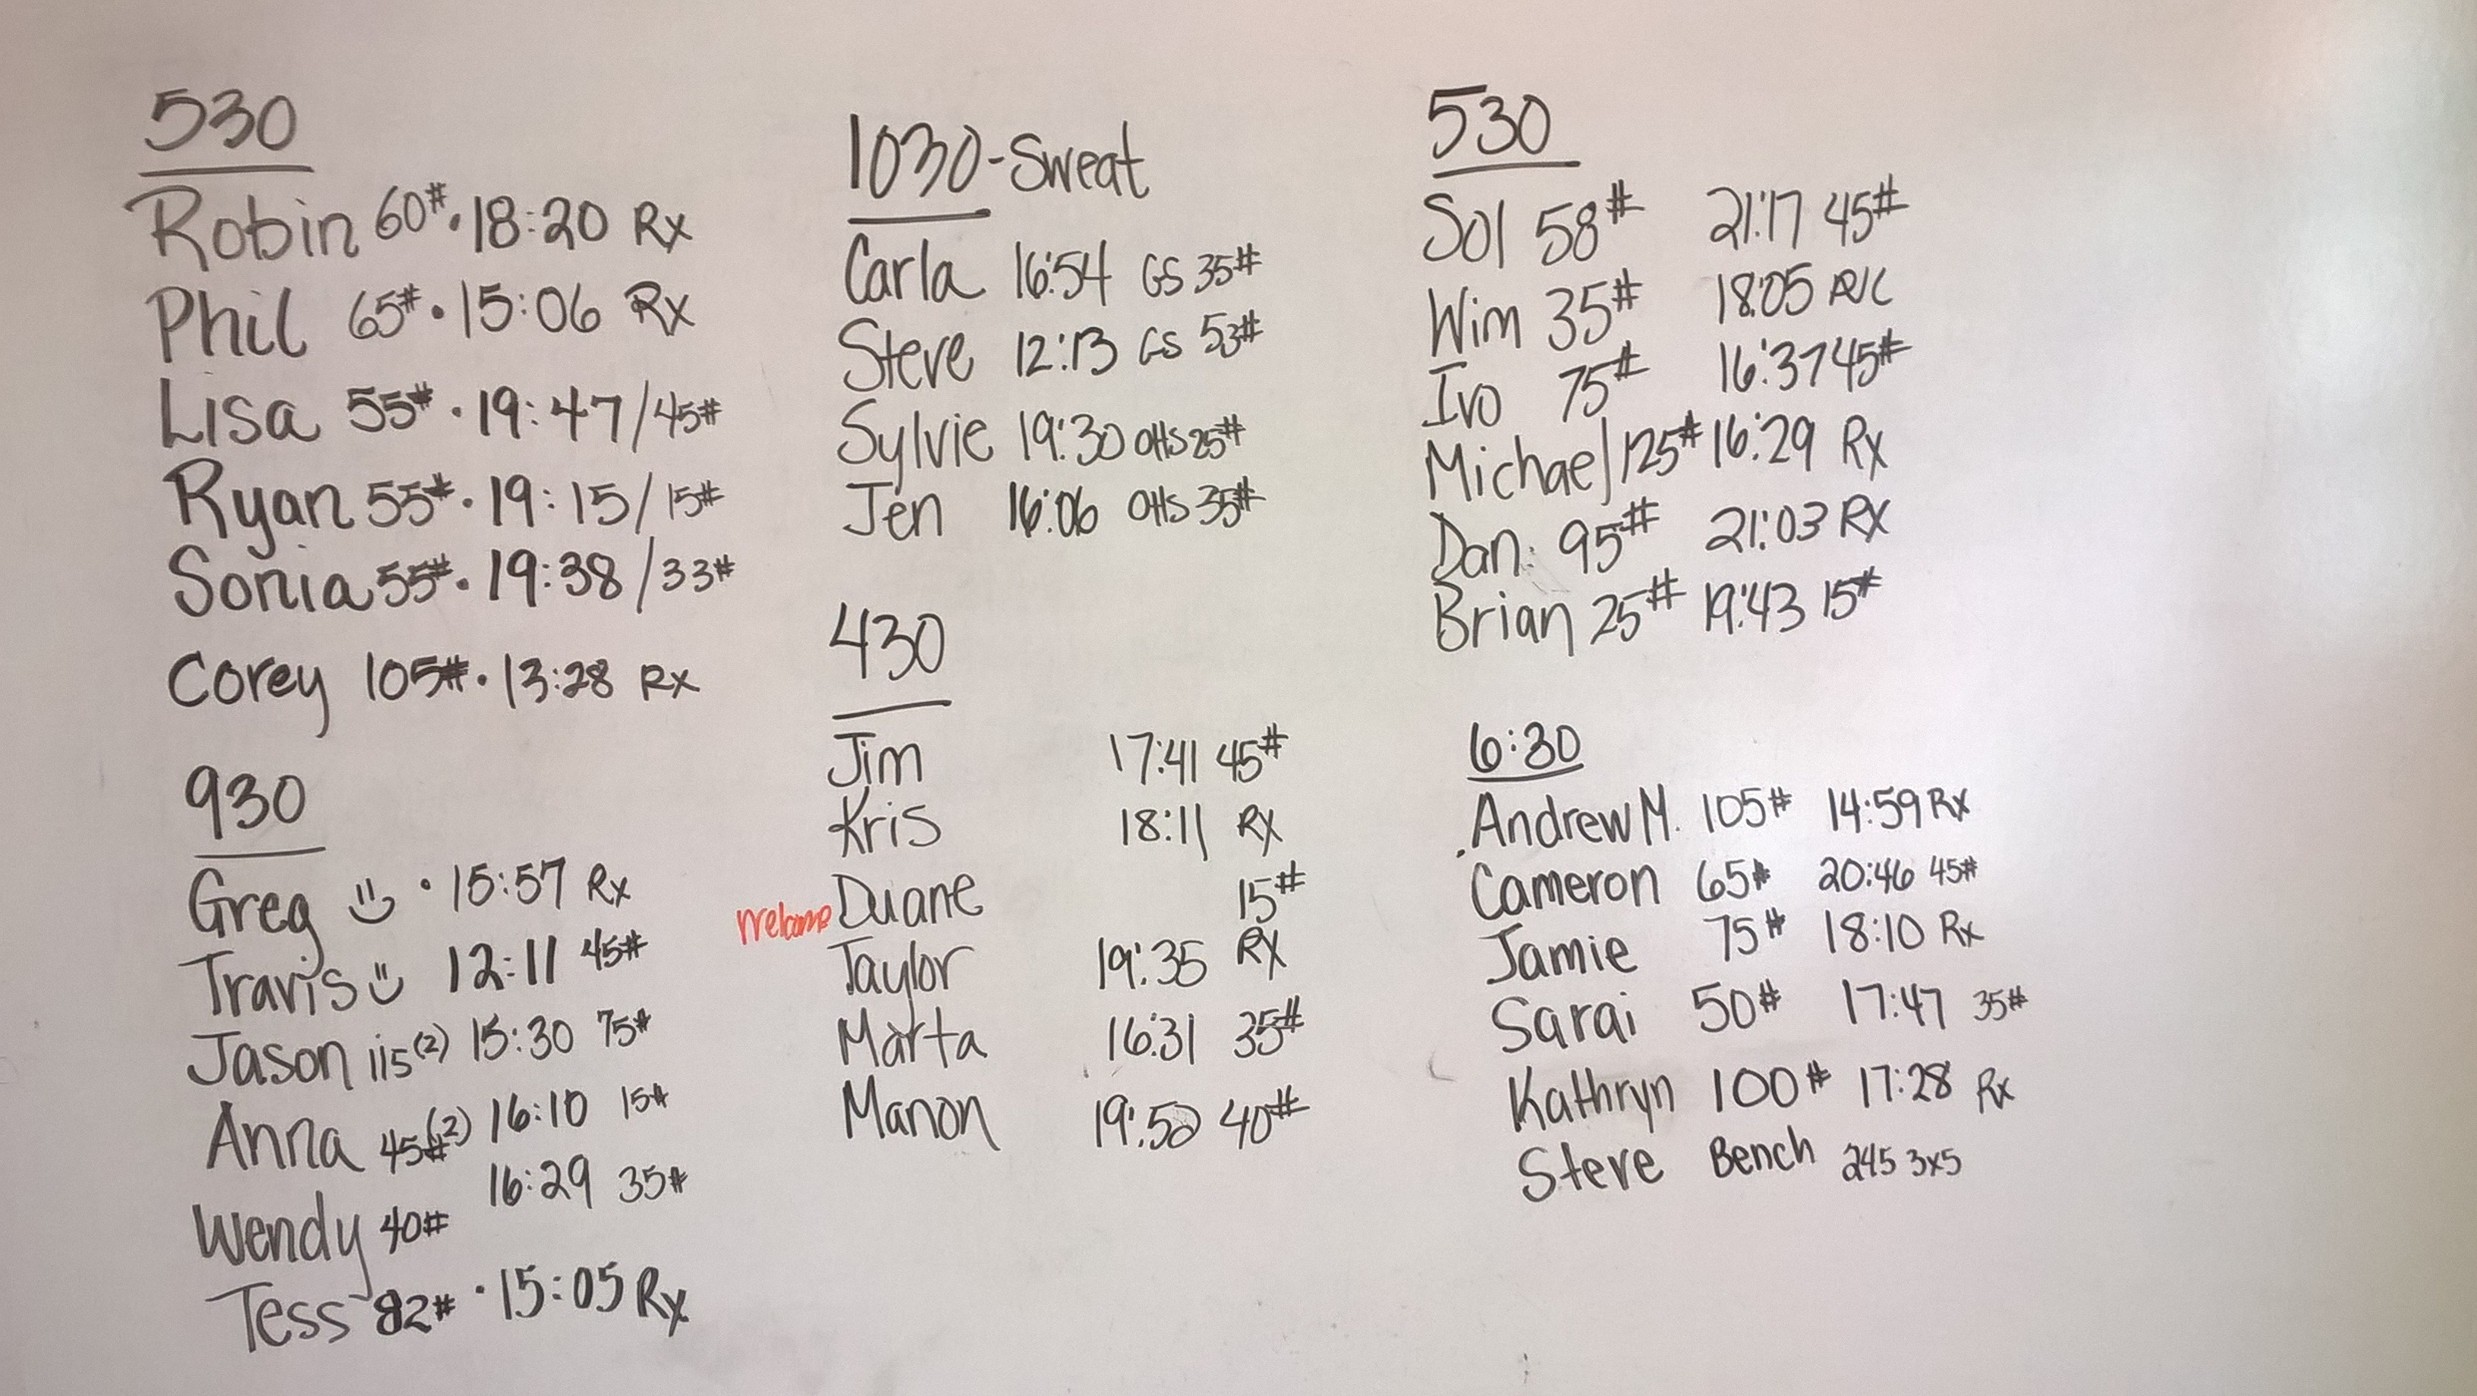 530
Robin 60# • 18:20 Rx
Phil 65# • 15:06 Rx
Lisa 55# • 19:47/45#
Ryan 55# • 19:15/15#
Sonia 55# • 19:38/33#
Corey 105# • 13:28 Rx
930
Greg • 15:57 Rx
Travis 12:11 45#
Jason 115(2) 15:30 75#
Anna 45#(2) 16:10 15#
Wendy 40# 16:29 35#
Tess 82# • 15:05 Rx
1030-Sweat
Carla 16:54 GS 35#
Steve 12:13 GS 53#
Sylvie 19:30 OHS 25#
Jen 16:06 OHS 35#
430
Jim 17:41 45#
Kris 18:11 Rx
Welcome Duane 15#
Taylor 19:35 RX
Marta 16:31 35#
Manon 19:50 40#
530
Sol 58# 21:17 45#
Wim 35# 18:05
Ivo 75# 16:37 45#
Michael 125# 16:29 Rx
Dan: 95# 21:03 RX
Brian 25# 19:43 15#
6:30
Andrew M. 105# 14:59 Rx
Cameron 65# 20:46 45#
Jamie 75# 18:10 Rx
Sarai 50# 17:47 35#
Kathryn 100# 17:28 Rx
Steve Bench 245 3x5